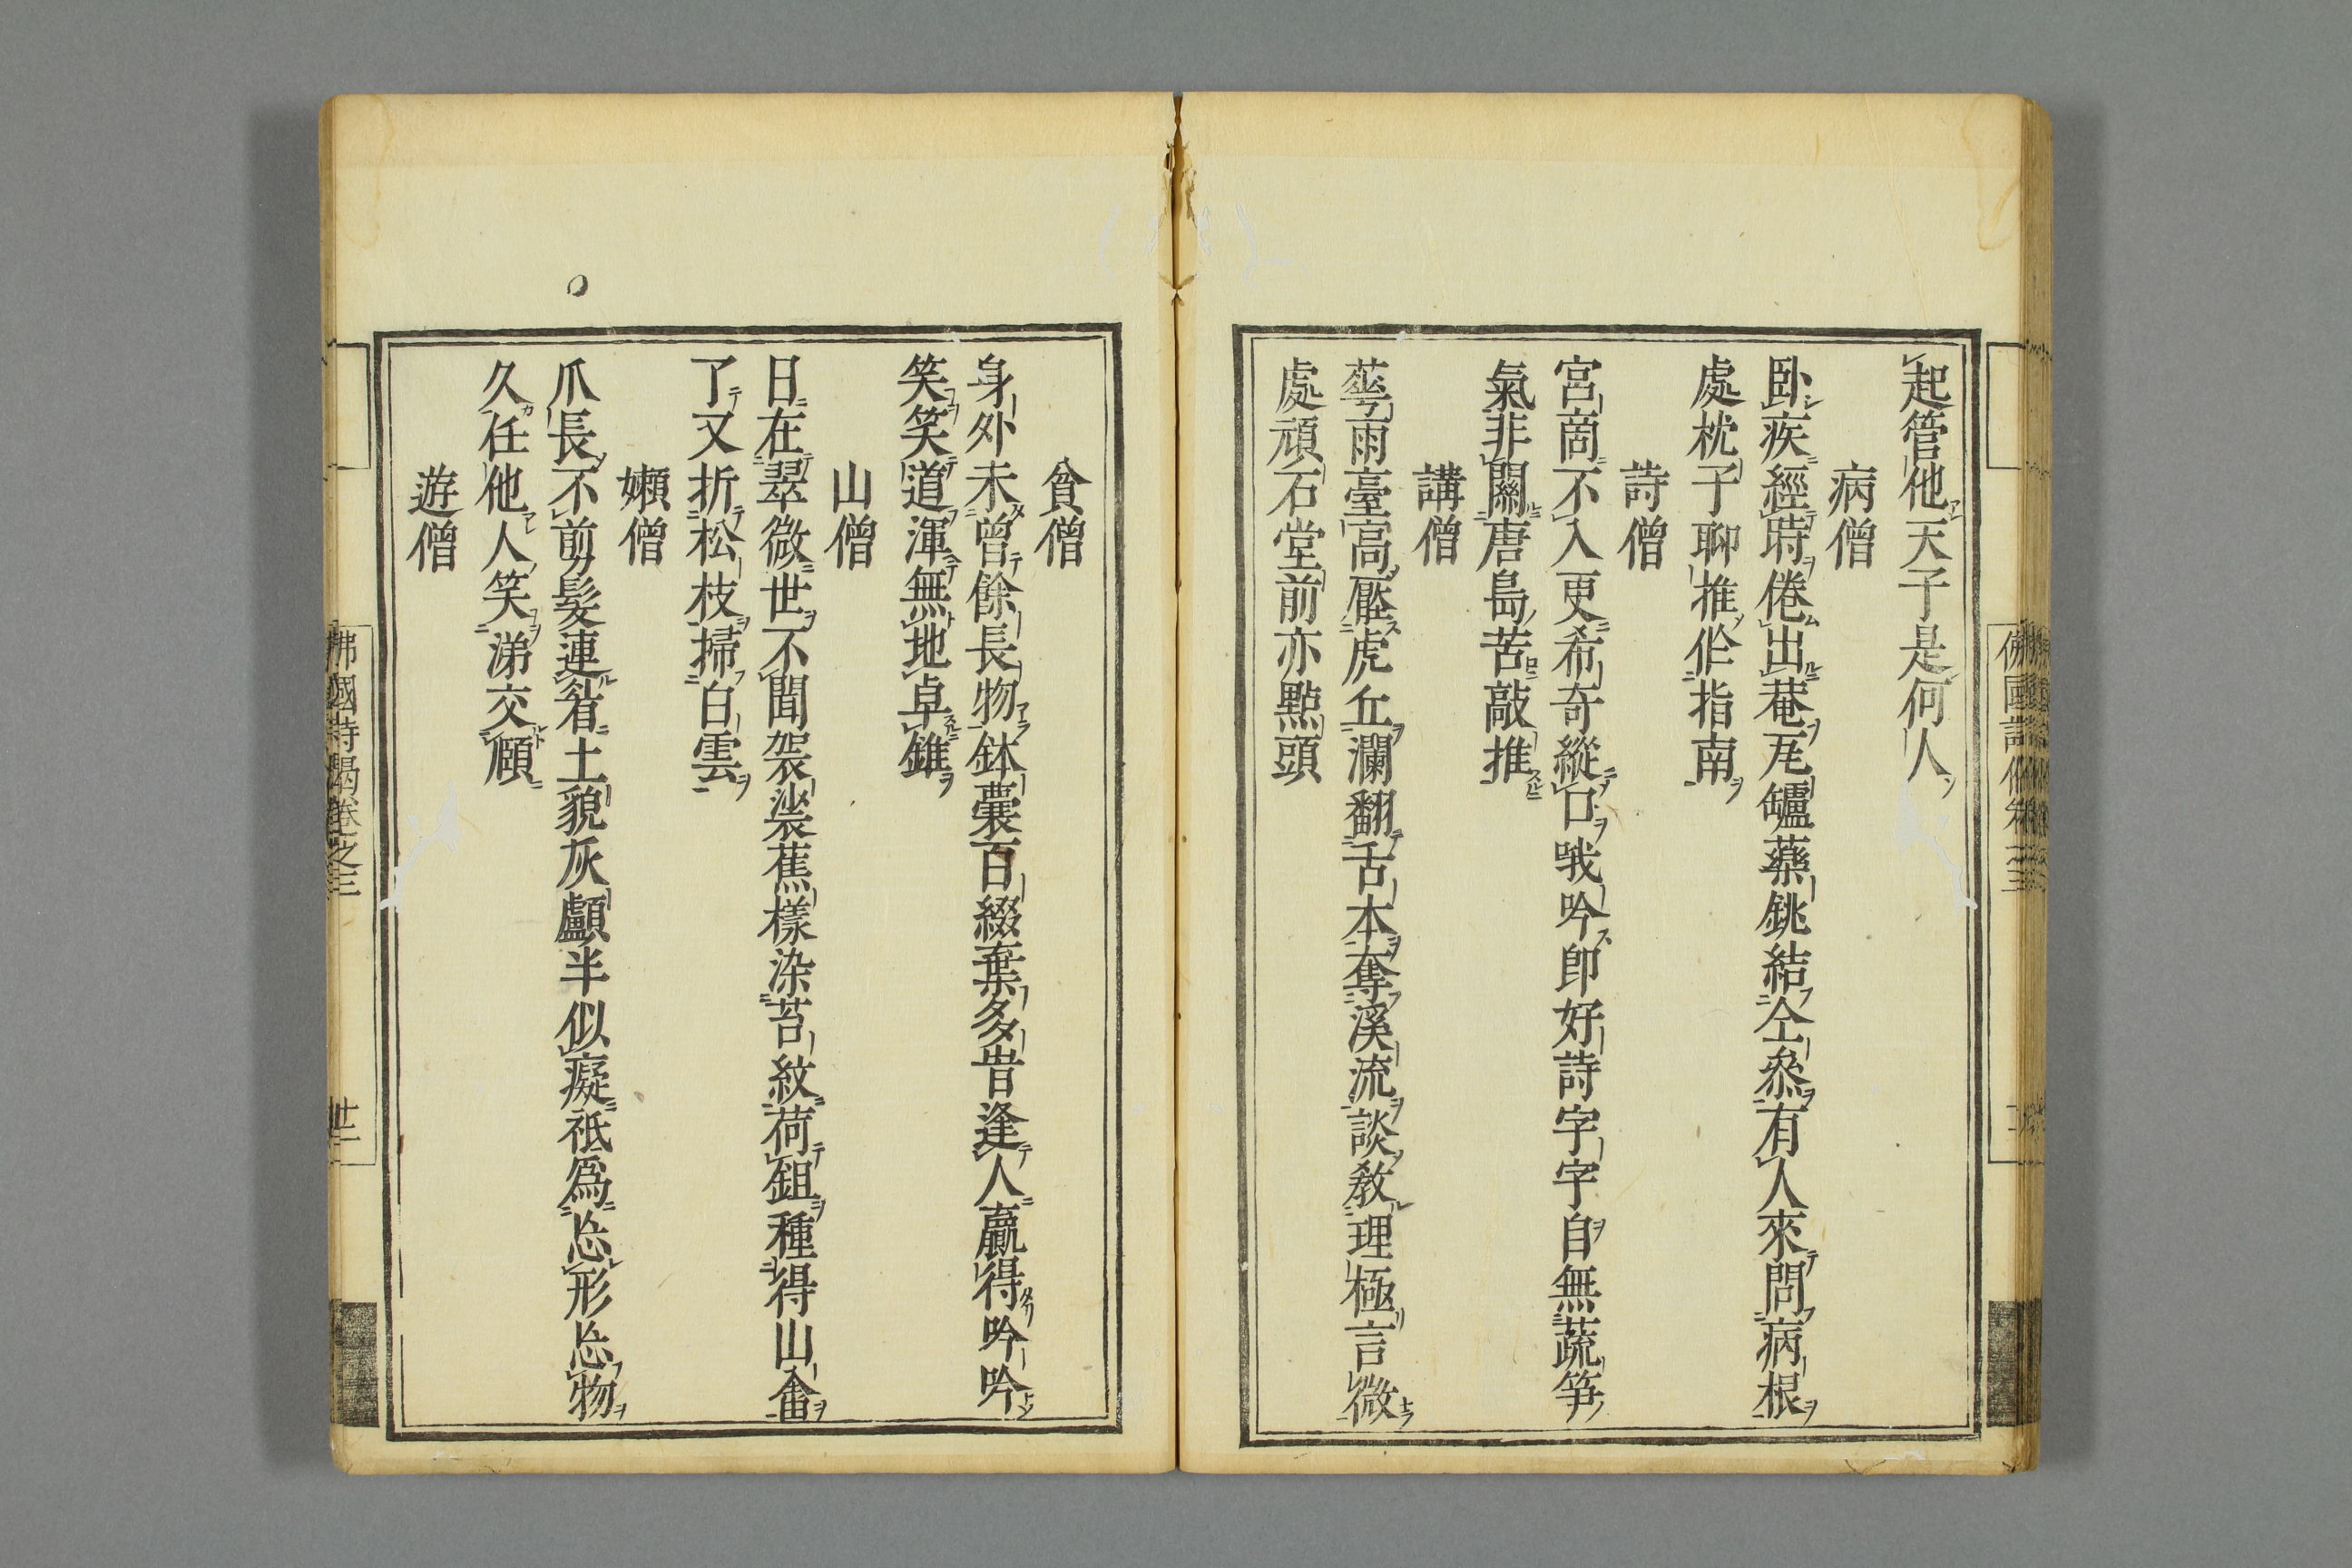 起管他天子是何人
病僧
臥疾經時倦出菴瓦罏藥銚結仝叅有人來問病根
處枕子聊推作指南
詩僧
宮商不入更希奇縱口哦吟即好詩字字自無蔬笋
氣非關唐島苦敲推
講僧
蕚雨臺高壓虎丘瀾翻舌本奪溪流談教理極言微
處頑石堂前亦點頭
貧僧
身外未曾餘長物鉢囊百綴棄多旹逢人贏得吟吟
笑笑道渾無地卓錐
山僧
日在翠微世不聞袈裟蕉樣染苔紋荷鉏種得山畬
了又折松枝掃白雲
嬾僧
爪長不剪髮連眥土貌灰顱半似癡祗爲忘形忘物
久任他人笑涕交頤
遊僧
佛國詩偈卷之三
廿二